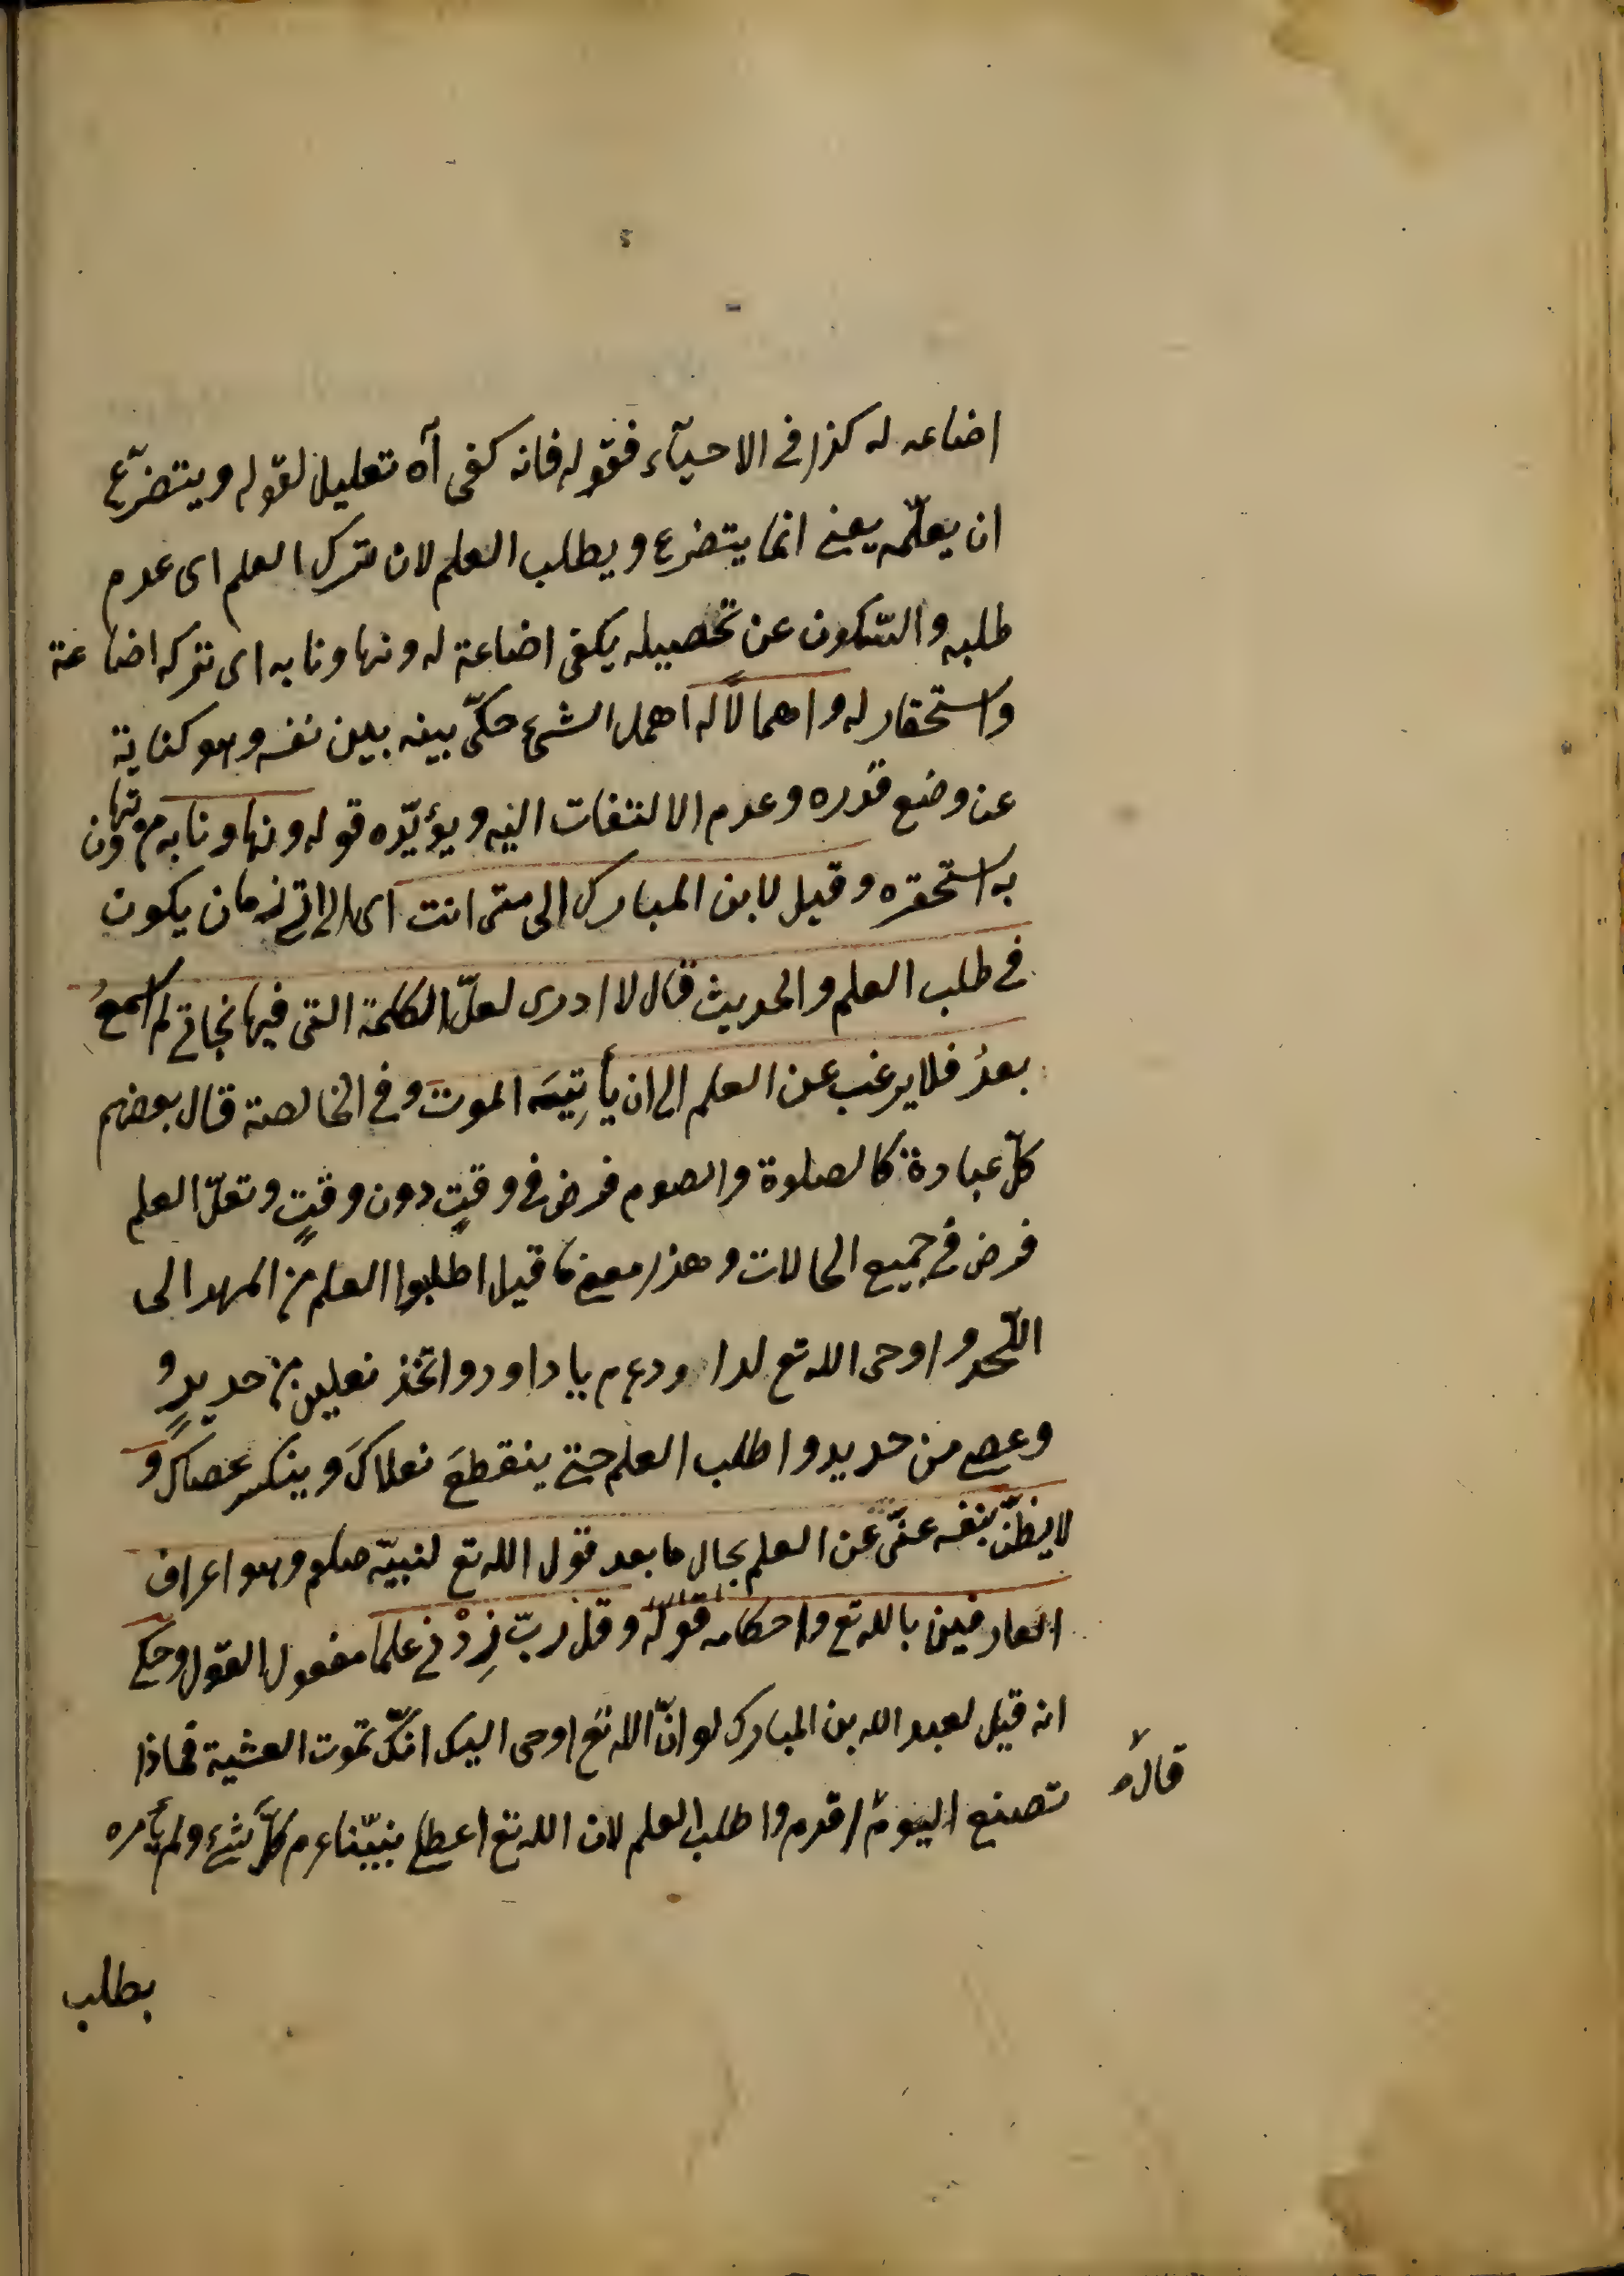 اضاعه له كذا فى الاحيآء فقوله فانه كفى آه تعليل لقوله ويتضرّع
ان يعلّمه يعنى انما يتضرع ويطلب العلم لان ترك العلم اى عدم
طلبه والسّكون عن تحصيله يكفى اضاعة له وتهاونا به اى تركه اضاعة
واستحقار له واهمالًا له اهمل الشئ خلّى بينه بين نفسه وهو كناية
عن وضع قدره وعدم الالتفات اليه ويؤيّده قوله وتهاونا به من تهاون
به استحقره وقيل لابن المبارك الى متى انت اى الى اىّ زمان يكون
فى طلب العلم والحديث قال لا ادرى لعلّ الكلمة التى فيها نجاتى لم اسمع
بعدُ فلا يرغب عن العلم الى ان يأتِيَه الموت وفى الخالصة قال بعضهم
كلّ عبادة كالصلوة والصوم فرض فى وقتٍ دون وقتٍ وتعلّم العلم
فرض فى جميع الحالات وهذا معنى ما قيل اطلبوا العلم من المهد الى
اللّحد واوحى الله تع لداود عم يا داود واتخذ نعلين من حديدٍ و
وعصى من حديد واطلب العلم حتى ينقطعَ نعلاكَ وينكسر عصاك و
لا يظنّ بنفسه غنًى عن العلم بحال ما بعد قول الله تع لنبيّه صلعم وهو اعراف
العارفين بالله تع واحكامه قوله وقل ربّ زِدْنى علما مفعول القول وحكى
انه قيل لعبد الله بن المبارك لو انّ الله تع اوحى اليك انّك تموت العشية فماذا
تصنع اليوم اقدم واطلب العلم لان الله تع اعطى نبيّنا عم كلَّ شئ ولم يأمره
قال
بطلب